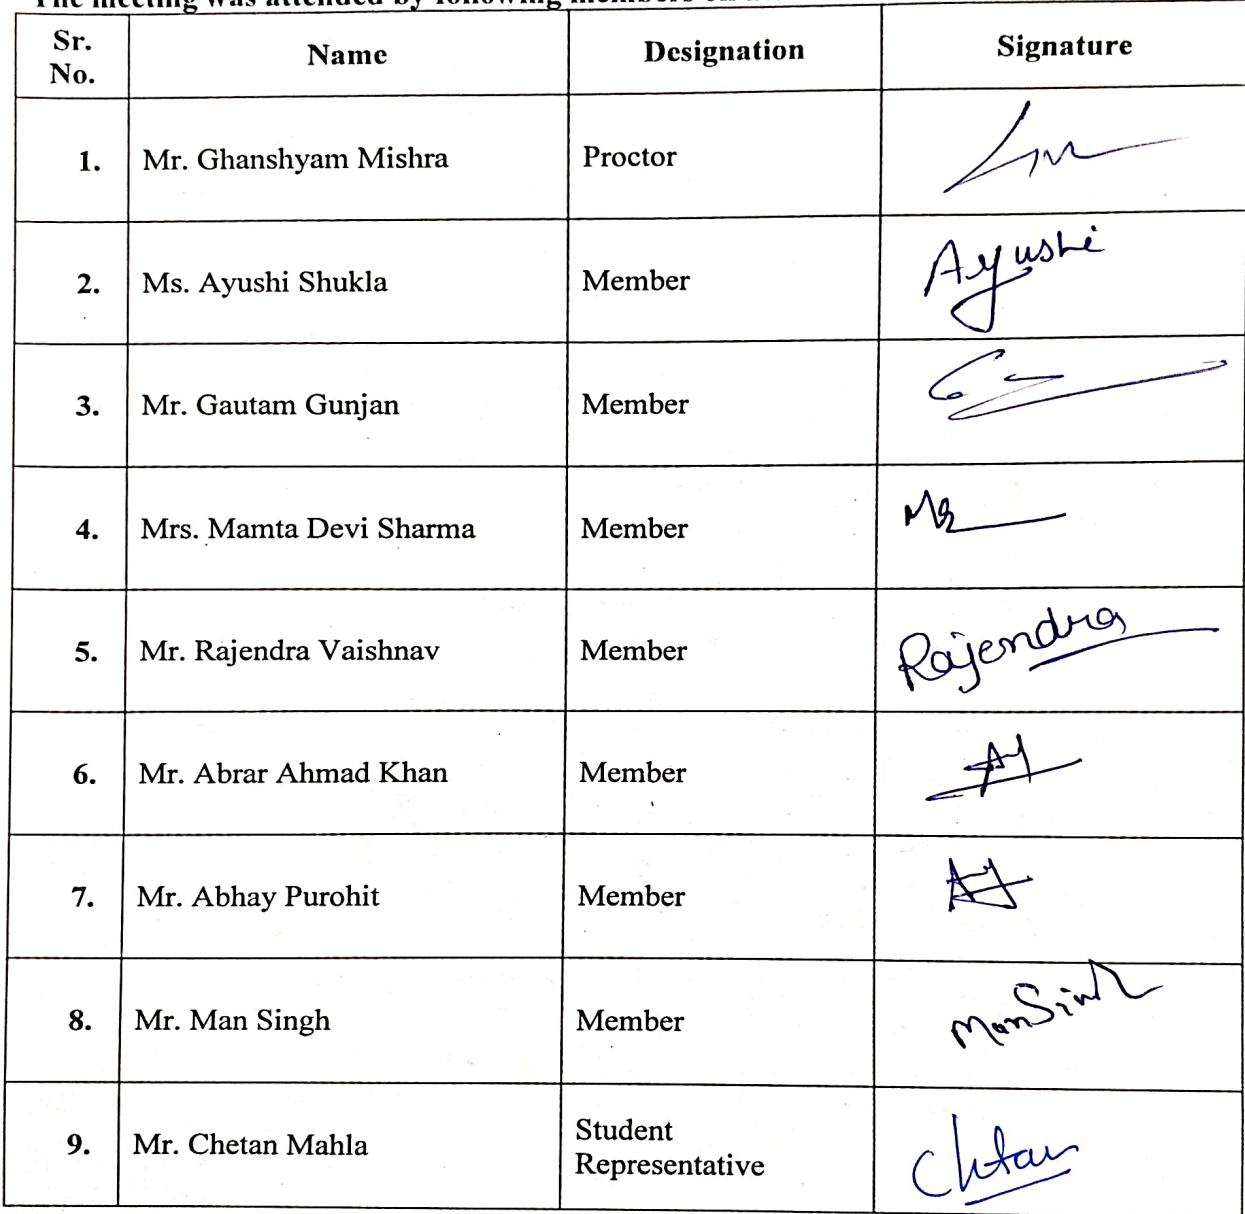 The meeting was attended by following members
Sr. No. Name Designation Signature
1. Mr. Ghanshyam Mishra Proctor
2. Ms. Ayushi Shukla Member Ayushi
3. Mr. Gautam Gunjan Member
4. Mrs. Mamta Devi Sharma Member
5. Mr. Rajendra Vaishnav Member Rajendra
6. Mr. Abrar Ahmad Khan Member
7. Mr. Abhay Purohit Member
8. Mr. Man Singh Member ManSingh
9. Mr. Chetan Mahla Student Representative Chetan